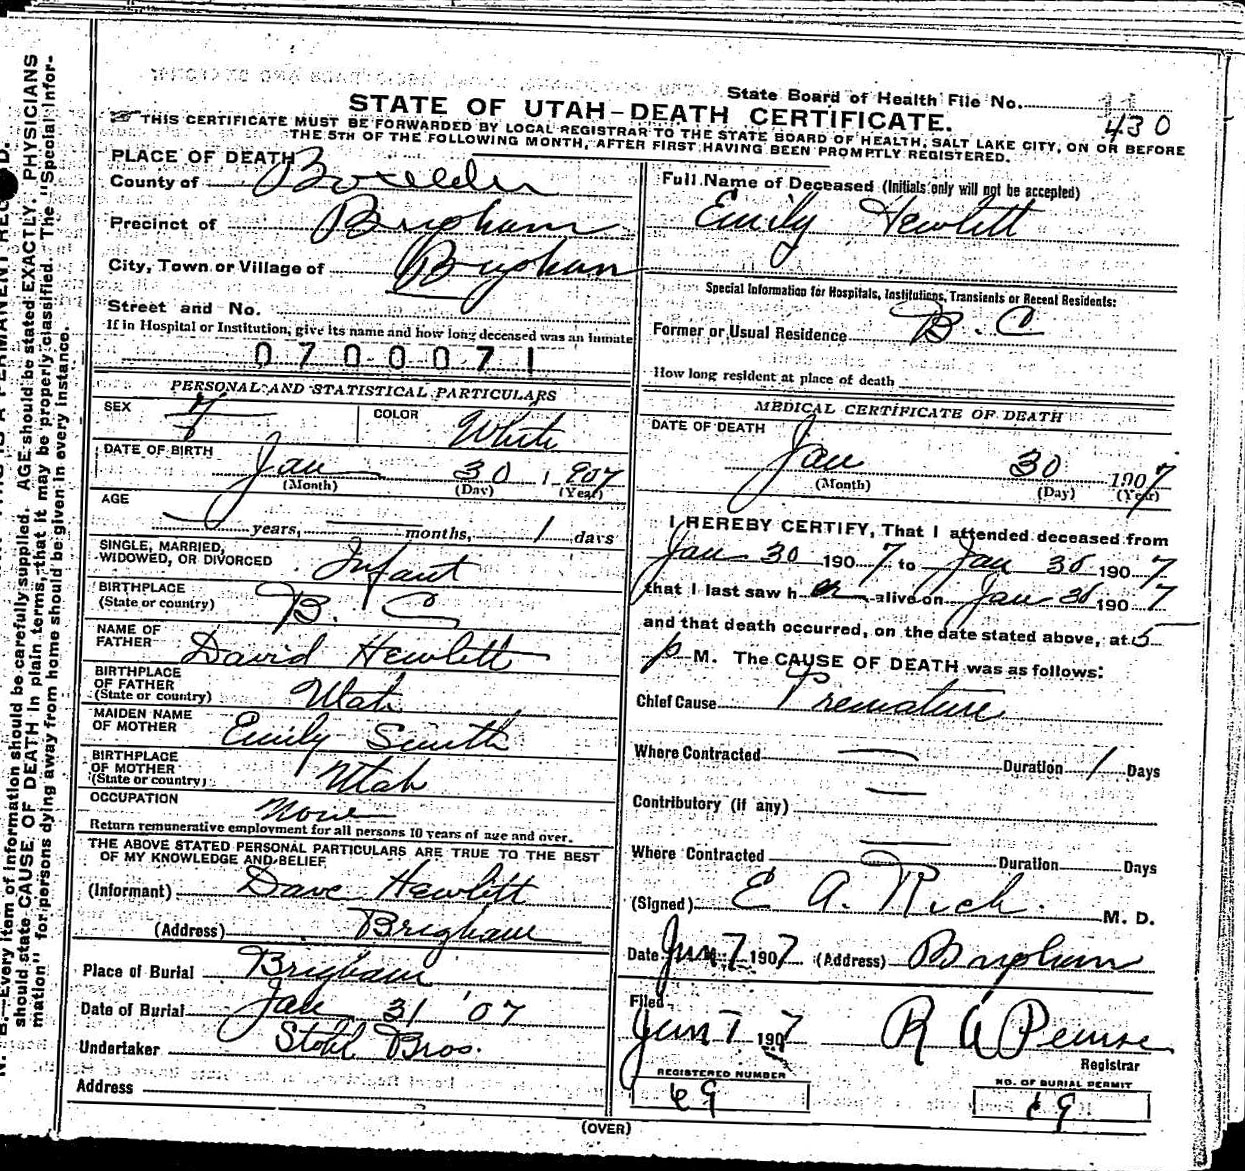 State Board of Health File No.
430
STATE OF UTAH-DEATH CERTIFICATE.
THIS CERTIFICATE MUST BE FORWARDED BY LOCAL REGISTRAR TO THE STATE BOARD OF HEALTH, SALT LAKE CITY, ON OR BEFORE
THE 5TH OF THE FOLLOWING MONTH, AFTER FIRST HAVING BEEN PROMPTLY REGISTERED.
PLACE OF DEATH
County of Boxelder
Precinct of Brigham
City, Town or Village of Brigham
Street and No.
If in Hospital or Institution, give its name and how long deceased was an inmate
0700071
PERSONAL AND STATISTICAL PARTICULARS
SEX F COLOR White
DATE OF BIRTH Jan 30 1907
(Month) (Day) (Year)
AGE
years, months, 1 days
SINGLE, MARRIED,
WIDOWED, OR DIVORCED Infant
BIRTHPLACE
(State or country) B. C
NAME OF
FATHER David Hewlett
BIRTHPLACE
OF FATHER
(State or country) Utah
MAIDEN NAME
OF MOTHER Emily Smith
BIRTHPLACE
OF MOTHER
(State or country) Utah
OCCUPATION None
Return remunerative employment for all persons 10 years of age and over.
THE ABOVE STATED PERSONAL PARTICULARS ARE TRUE TO THE BEST
OF MY KNOWLEDGE AND BELIEF
(Informant) Dave Hewlett
(Address) Brigham
Place of Burial Brigham
Date of Burial Jan 31 '07
Undertaker Stohl Bros.
Address
Full Name of Deceased (Initials only will not be accepted)
Emily Hewlett
Special Information for Hospitals, Institutions, Transients or Recent Residents:
Former or Usual Residence B. C
How long resident at place of death
MEDICAL CERTIFICATE OF DEATH
DATE OF DEATH
Jan 30 1907
(Month) (Day) (Year)
I HEREBY CERTIFY, That I attended deceased from
Jan 30 1907 to Jan 30 1907
that I last saw h er alive on Jan 30 1907
and that death occurred, on the date stated above, at 5
p M. The CAUSE OF DEATH was as follows:
Chief Cause Premature
Where Contracted Duration 1 Days
Contributory (if any)
Where Contracted Duration Days
(Signed) E A. Rich. M. D.
Date 7 1907 (Address) Brigham
Filed
7 1907 R A Pearse
Registrar
REGISTERED NUMBER
69
NO. OF BURIAL PERMIT
69
(OVER)
N. B.—Every item of information should be carefully supplied. AGE should be stated EXACTLY. PHYSICIANS
should state CAUSE OF DEATH in plain terms, that it may be properly classified. The "Special Infor-
mation" for persons dying away from home should be given in every instance.